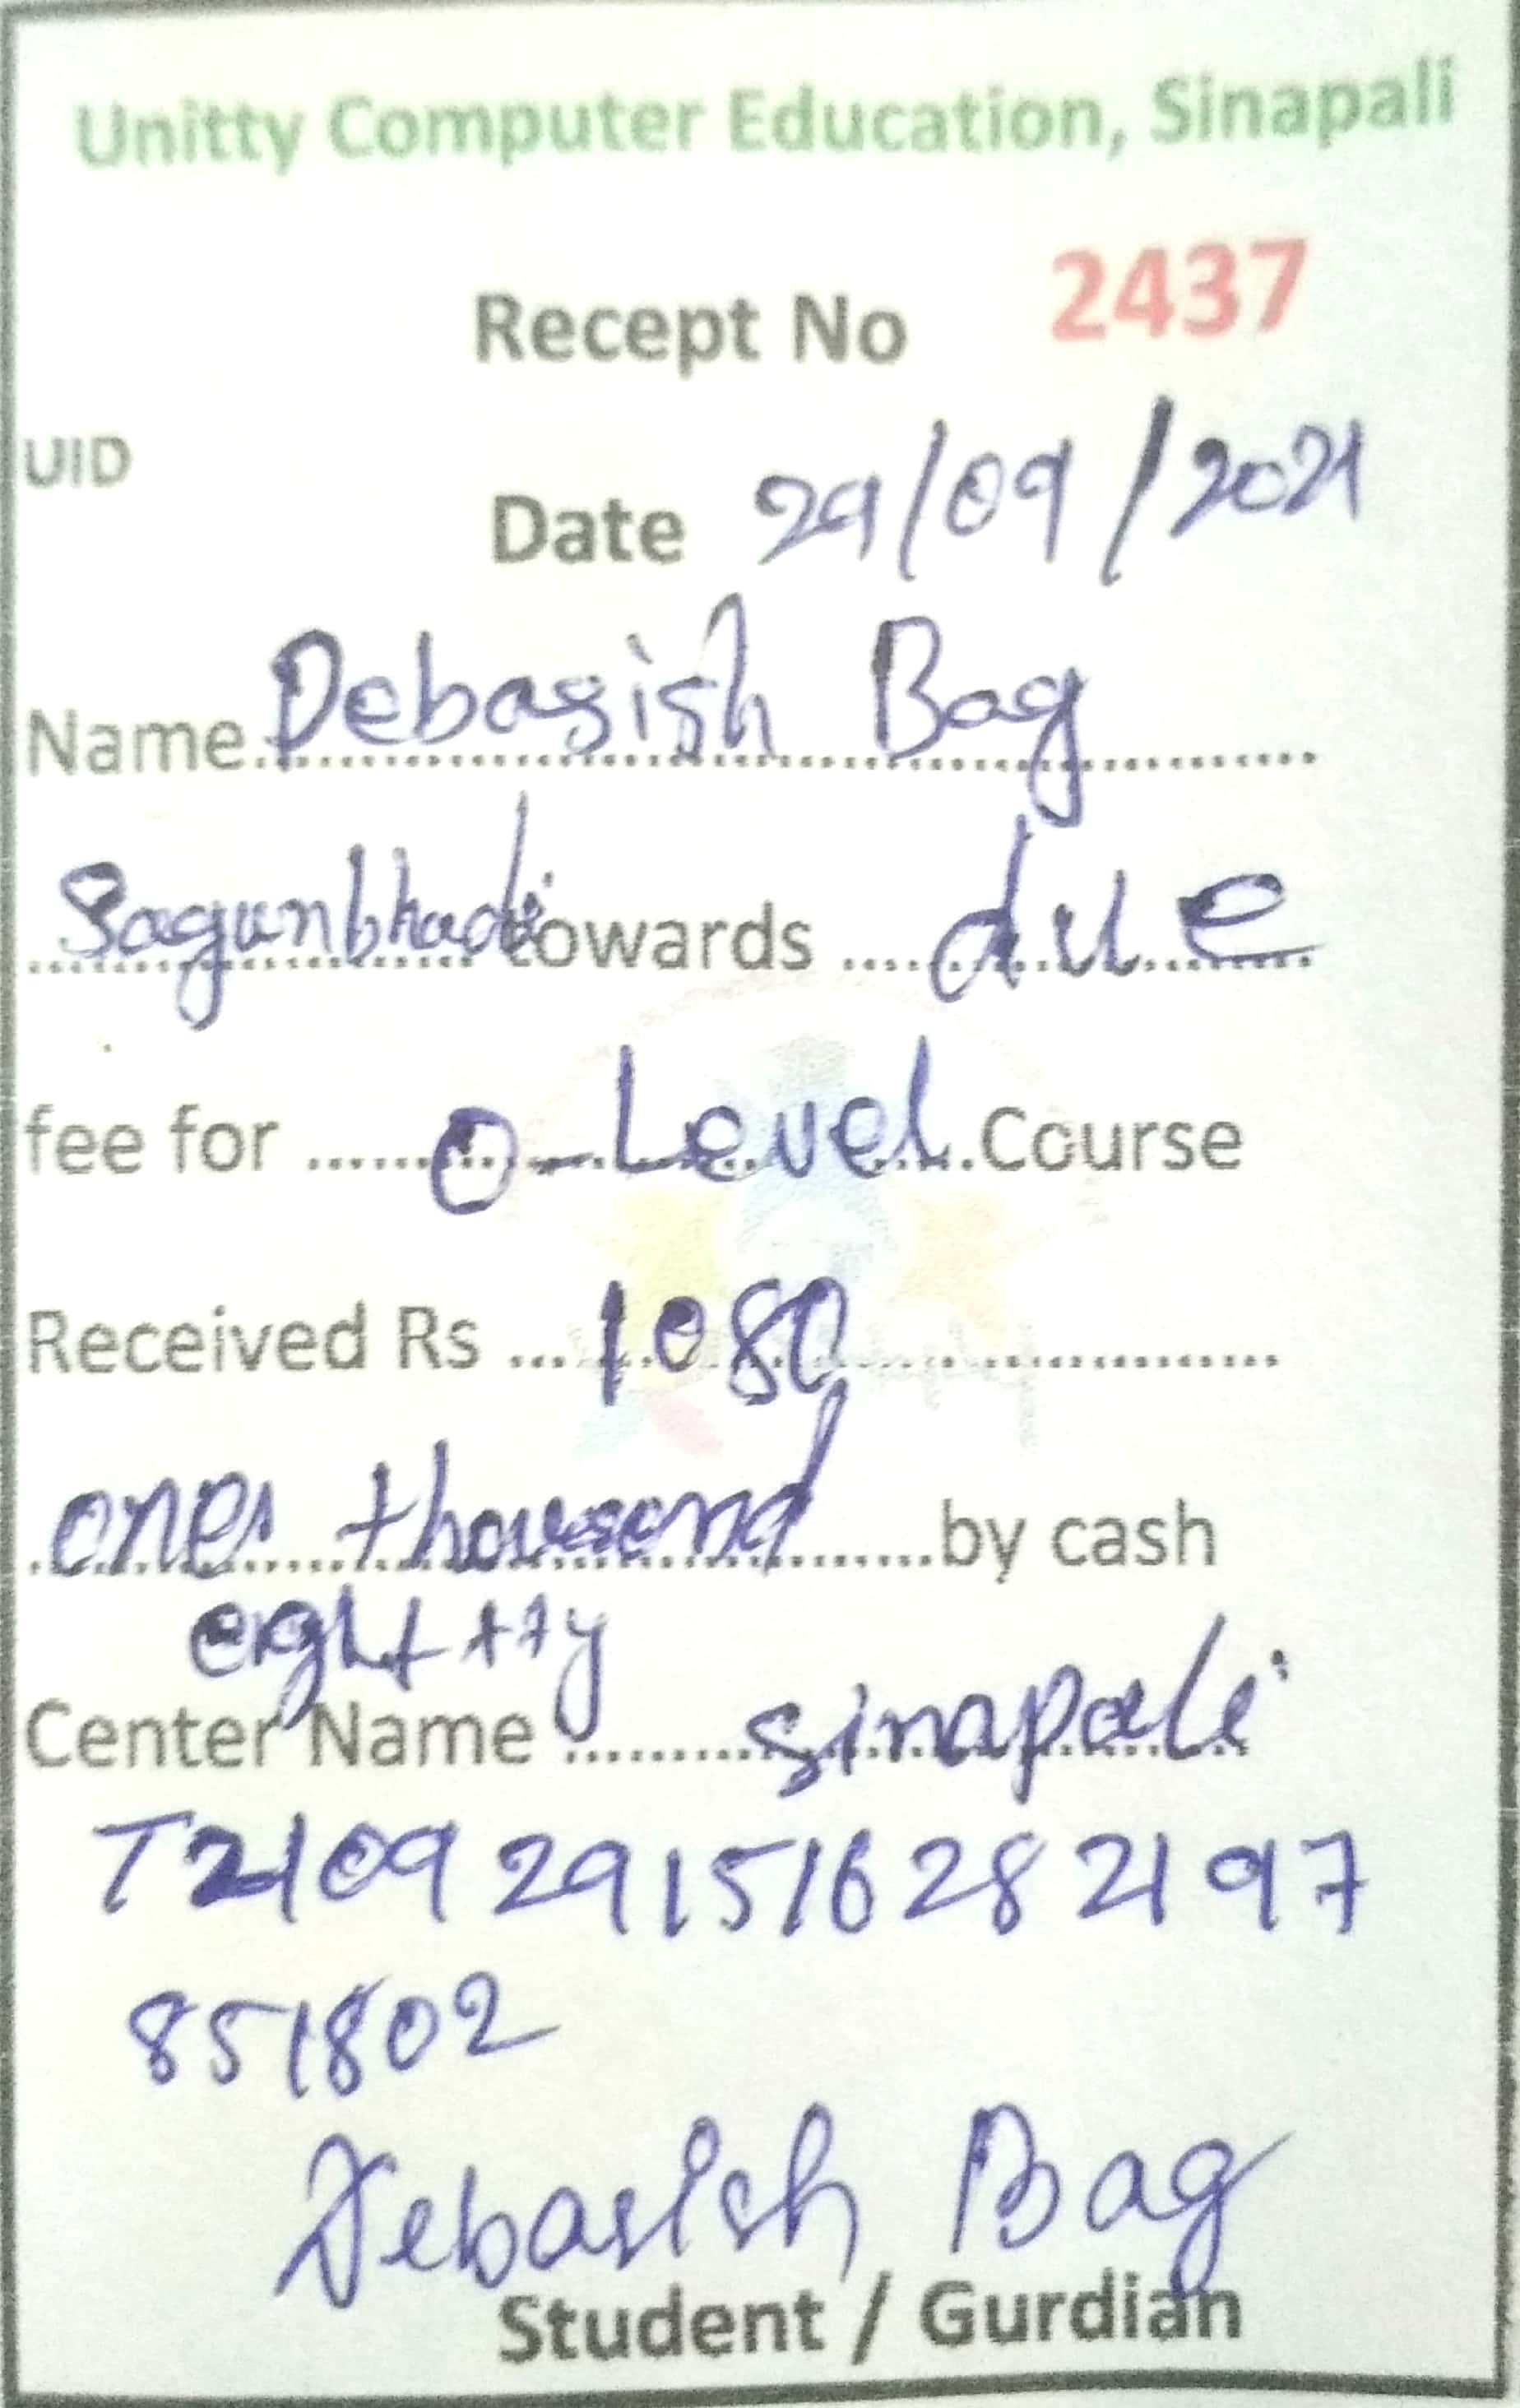 Unitty Computer Education, Sinapali
Recept No 2437
UID
Date 29/09/2021
Name Debasish Bag
Sagunbhadi towards due
fee for O-Level Course
Received Rs 1080
one thousand by cash
eightty
Center Name Sinapali
T2109291516282197
851802
Debasish Bag
Student / Gurdian